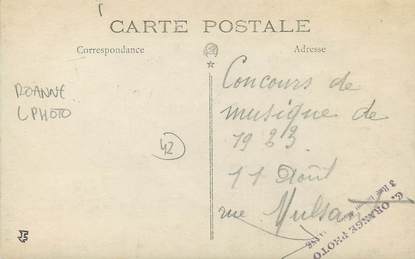 CARTE POSTALE
Correspondance
Adresse
ROANNE
CPHOTO
42
Concours de
musique de
1923
11 Août
rue Mulsant
G. ORANGE PHOTO
3 Rue